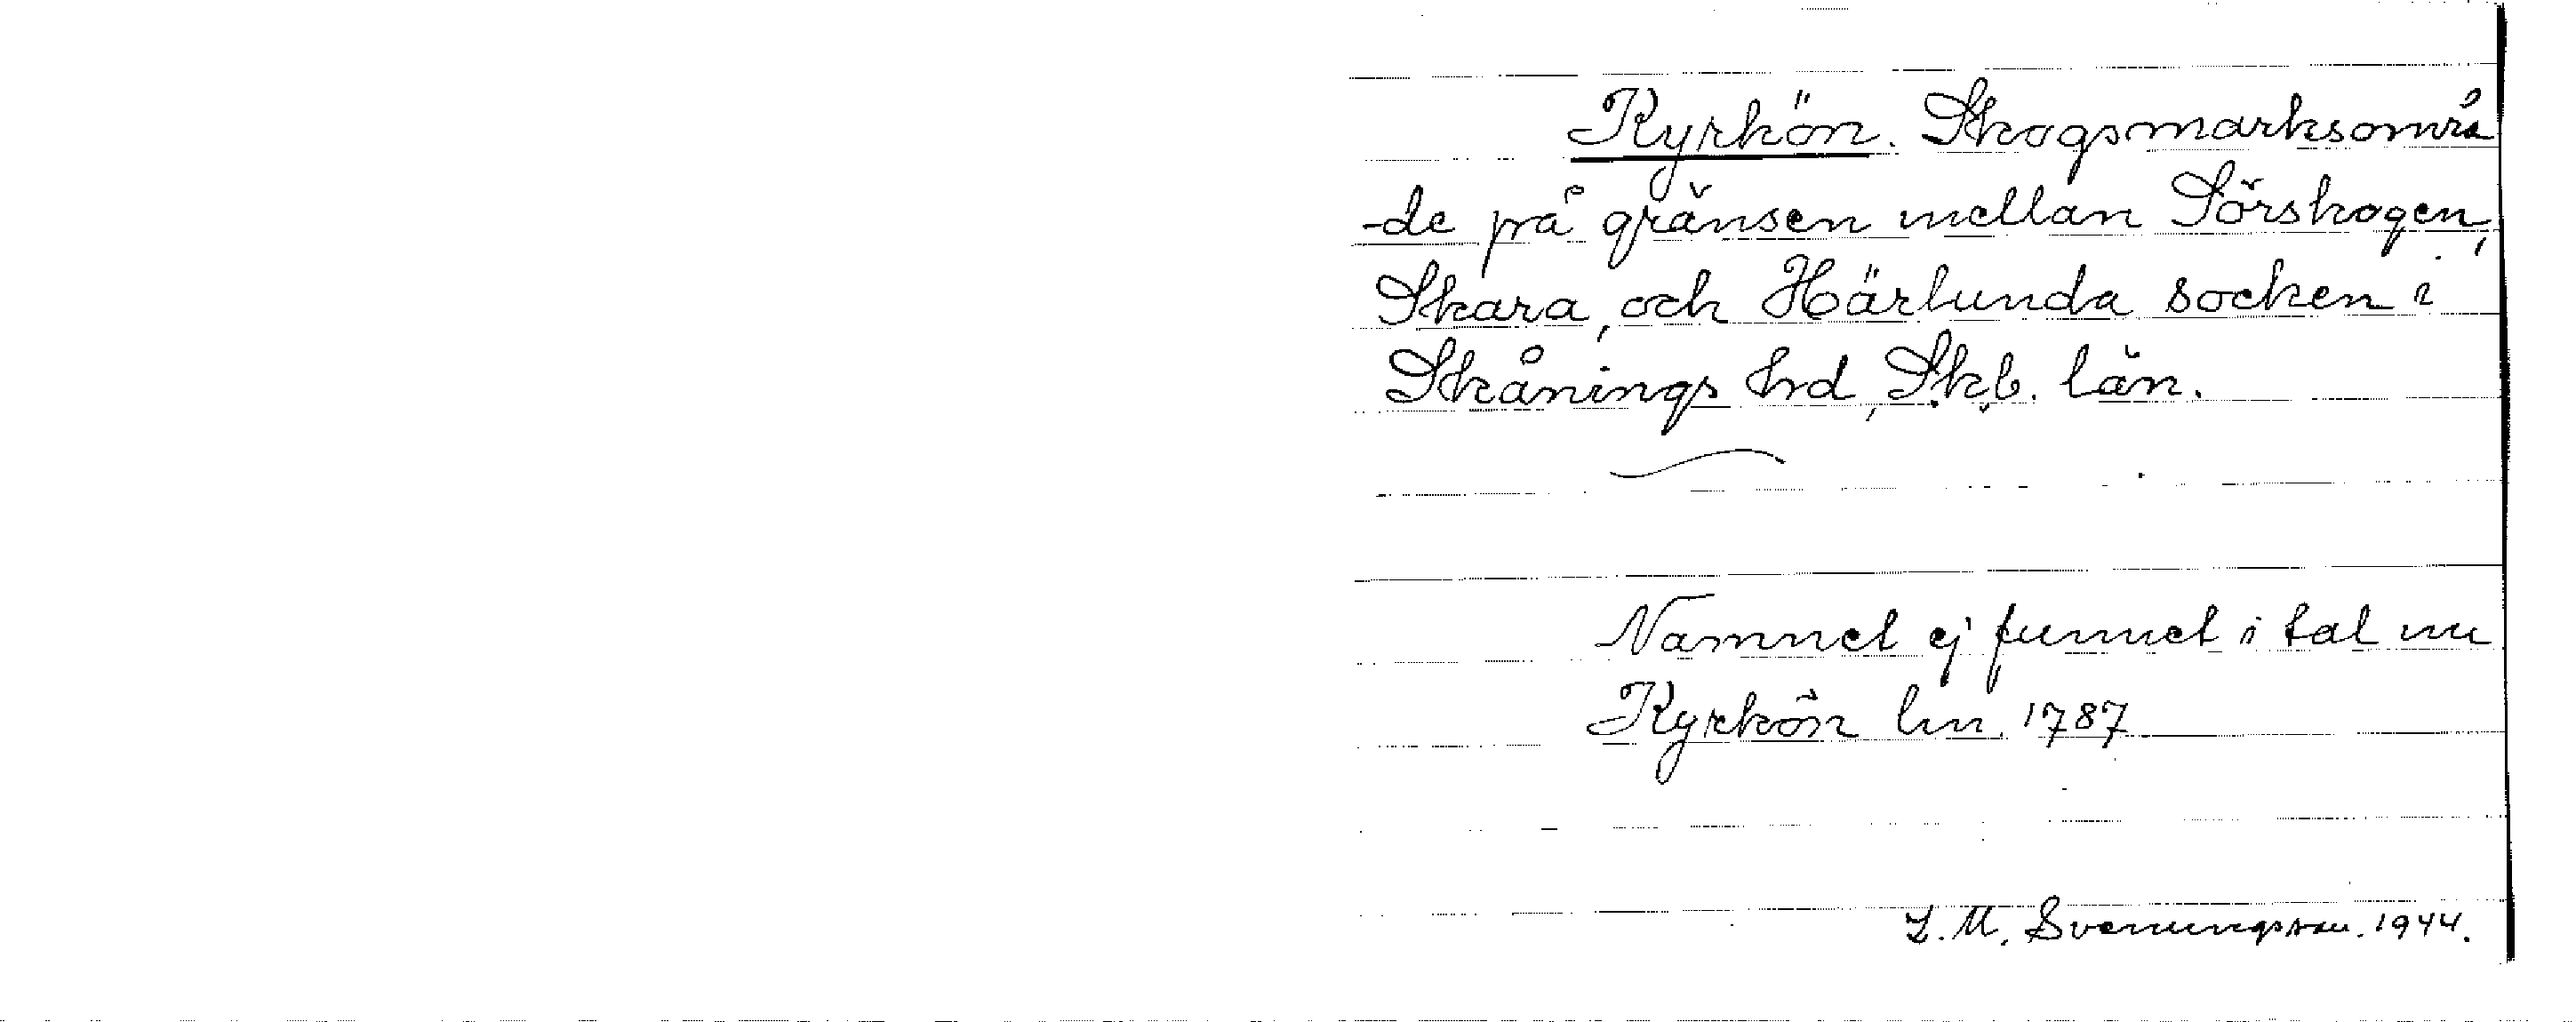 Kyrkön. Skogsmarksområ
-de på gränsen mellan Sörskogen,
Skara, och Härlunda socken i
Skånings hd, Skb. län.
Namnet ej funnet i tal nu
Kyrkön lm. 1787
L. M. Svenungsson. 1944.